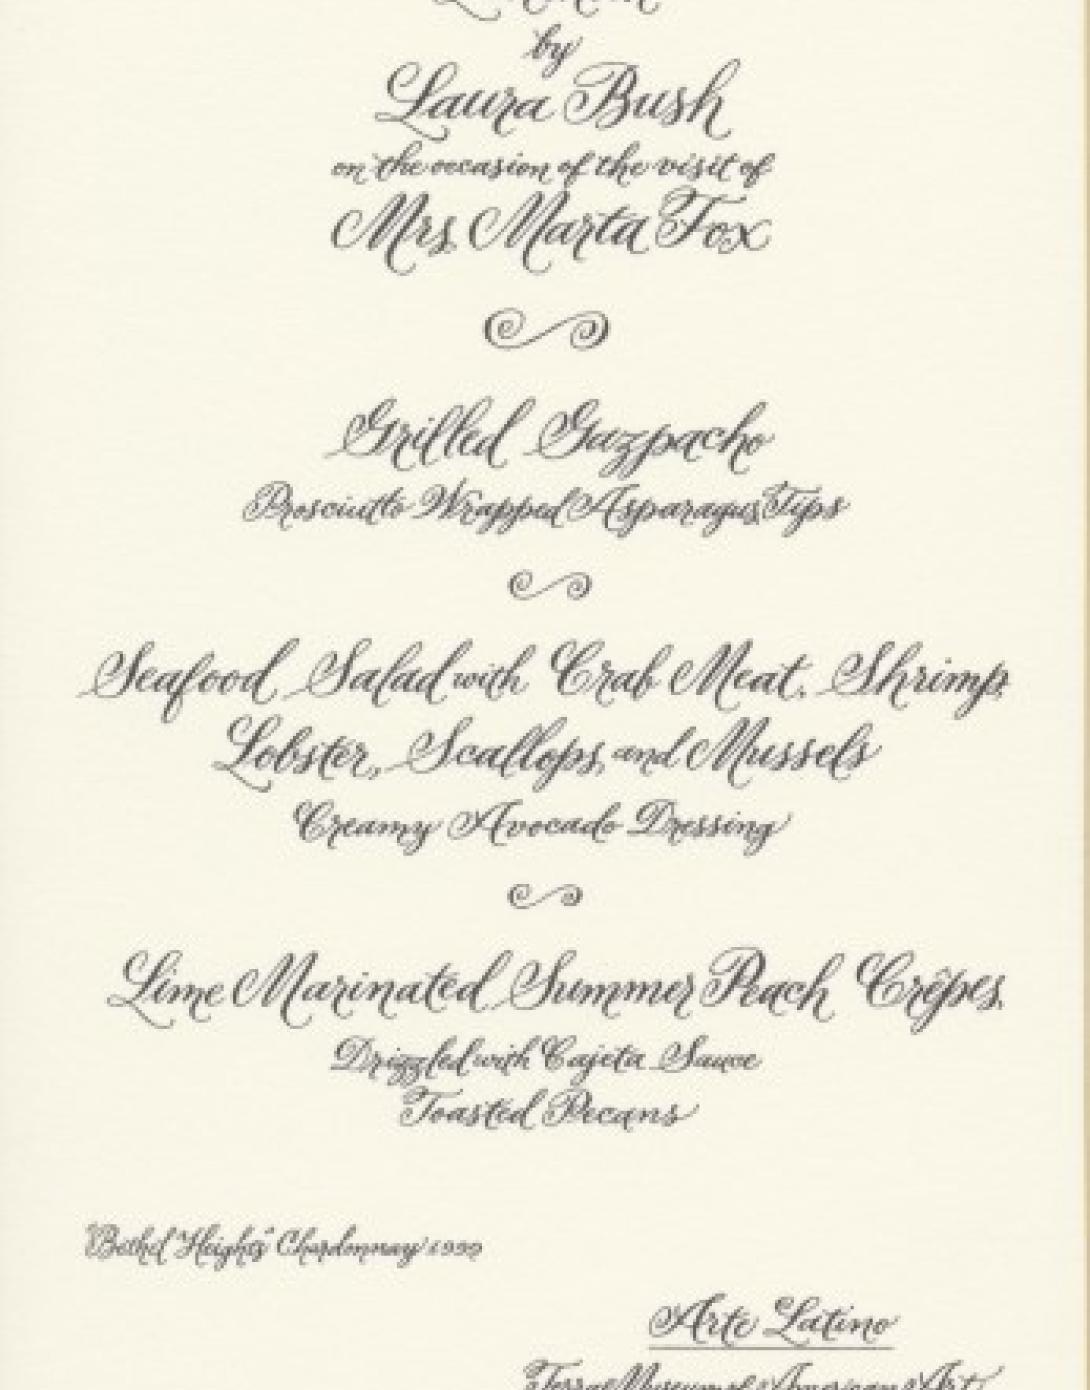 Luncheon
by
Laura Bush
on the occasion of the visit of
Mrs. Marta Fox
Grilled Gazpacho
Prosciutto Wrapped Asparagus Tips
Seafood Salad with Crab Meat, Shrimp,
Lobster, Scallops, and Mussels
Creamy Avocado Dressing
Lime Marinated Summer Peach Crêpes
Drizzled with Cajeta Sauce
Toasted Pecans
"Bethel Heights" Chardonnay 1999
Arte Latino
Terra Museum of American Art